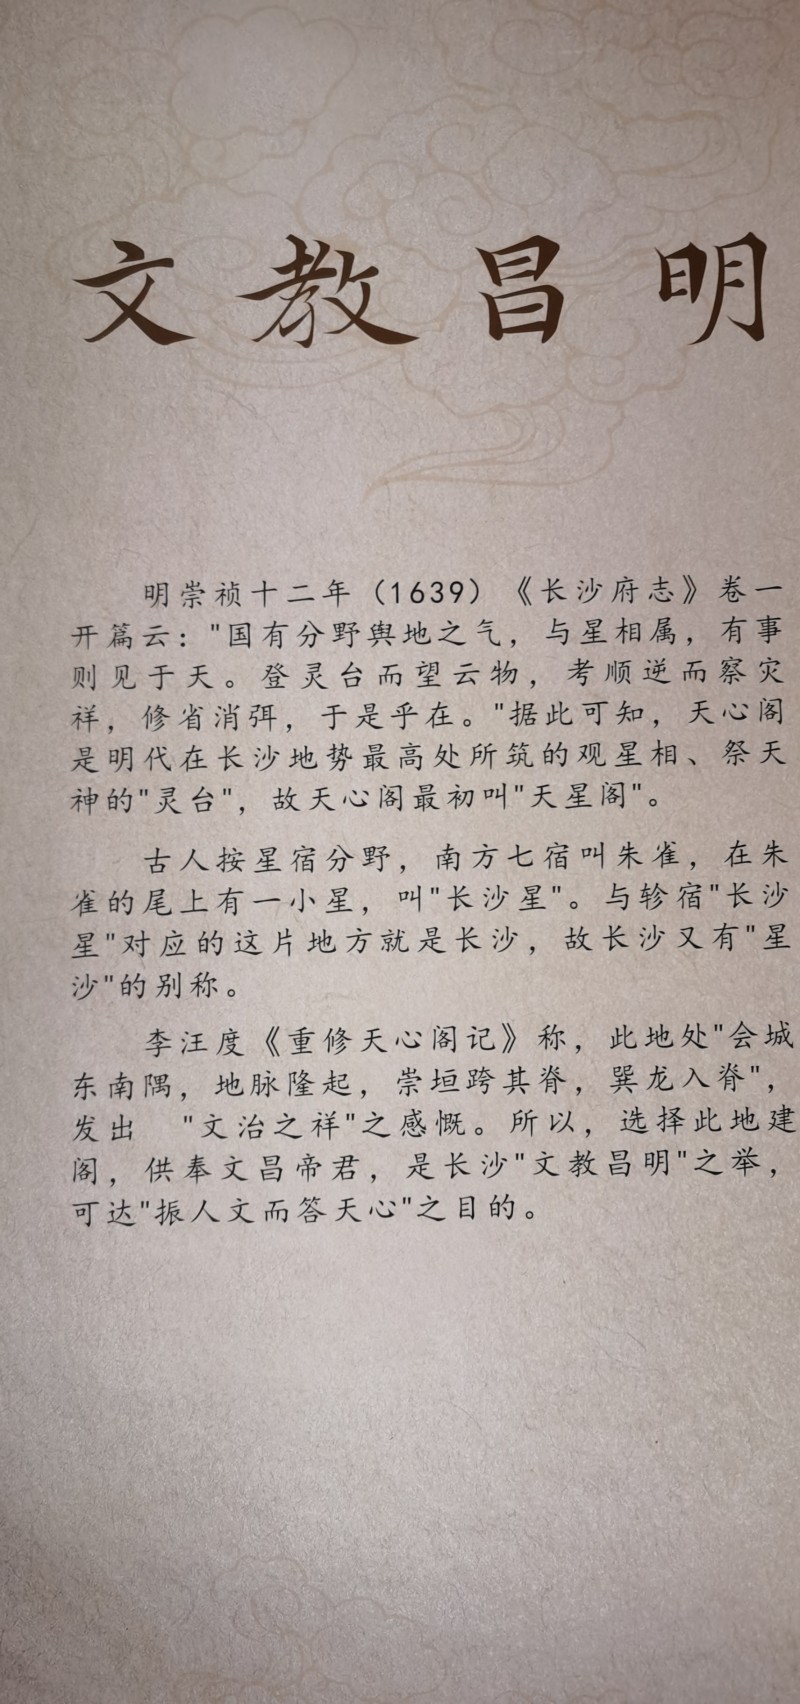 文教昌明
明崇祯十二年（1639）《长沙府志》卷一
开篇云："国有分野舆地之气，与星相属，有事
则见于天。登灵台而望云物，考顺逆而察灾
祥，修省消弭，于是乎在。"据此可知，天心阁
是明代在长沙地势最高处所筑的观星相、祭天
神的"灵台"，故天心阁最初叫"天星阁"。
古人按星宿分野，南方七宿叫朱雀，在朱
雀的尾上有一小星，叫"长沙星"。与轸宿"长沙
星"对应的这片地方就是长沙，故长沙又有"星
沙"的别称。
李汪度《重修天心阁记》称，此地处"会城
东南隅，地脉隆起，崇垣跨其脊，巽龙入脊"，
发出 "文治之祥"之感慨。所以，选择此地建
阁，供奉文昌帝君，是长沙"文教昌明"之举，
可达"振人文而答天心"之目的。